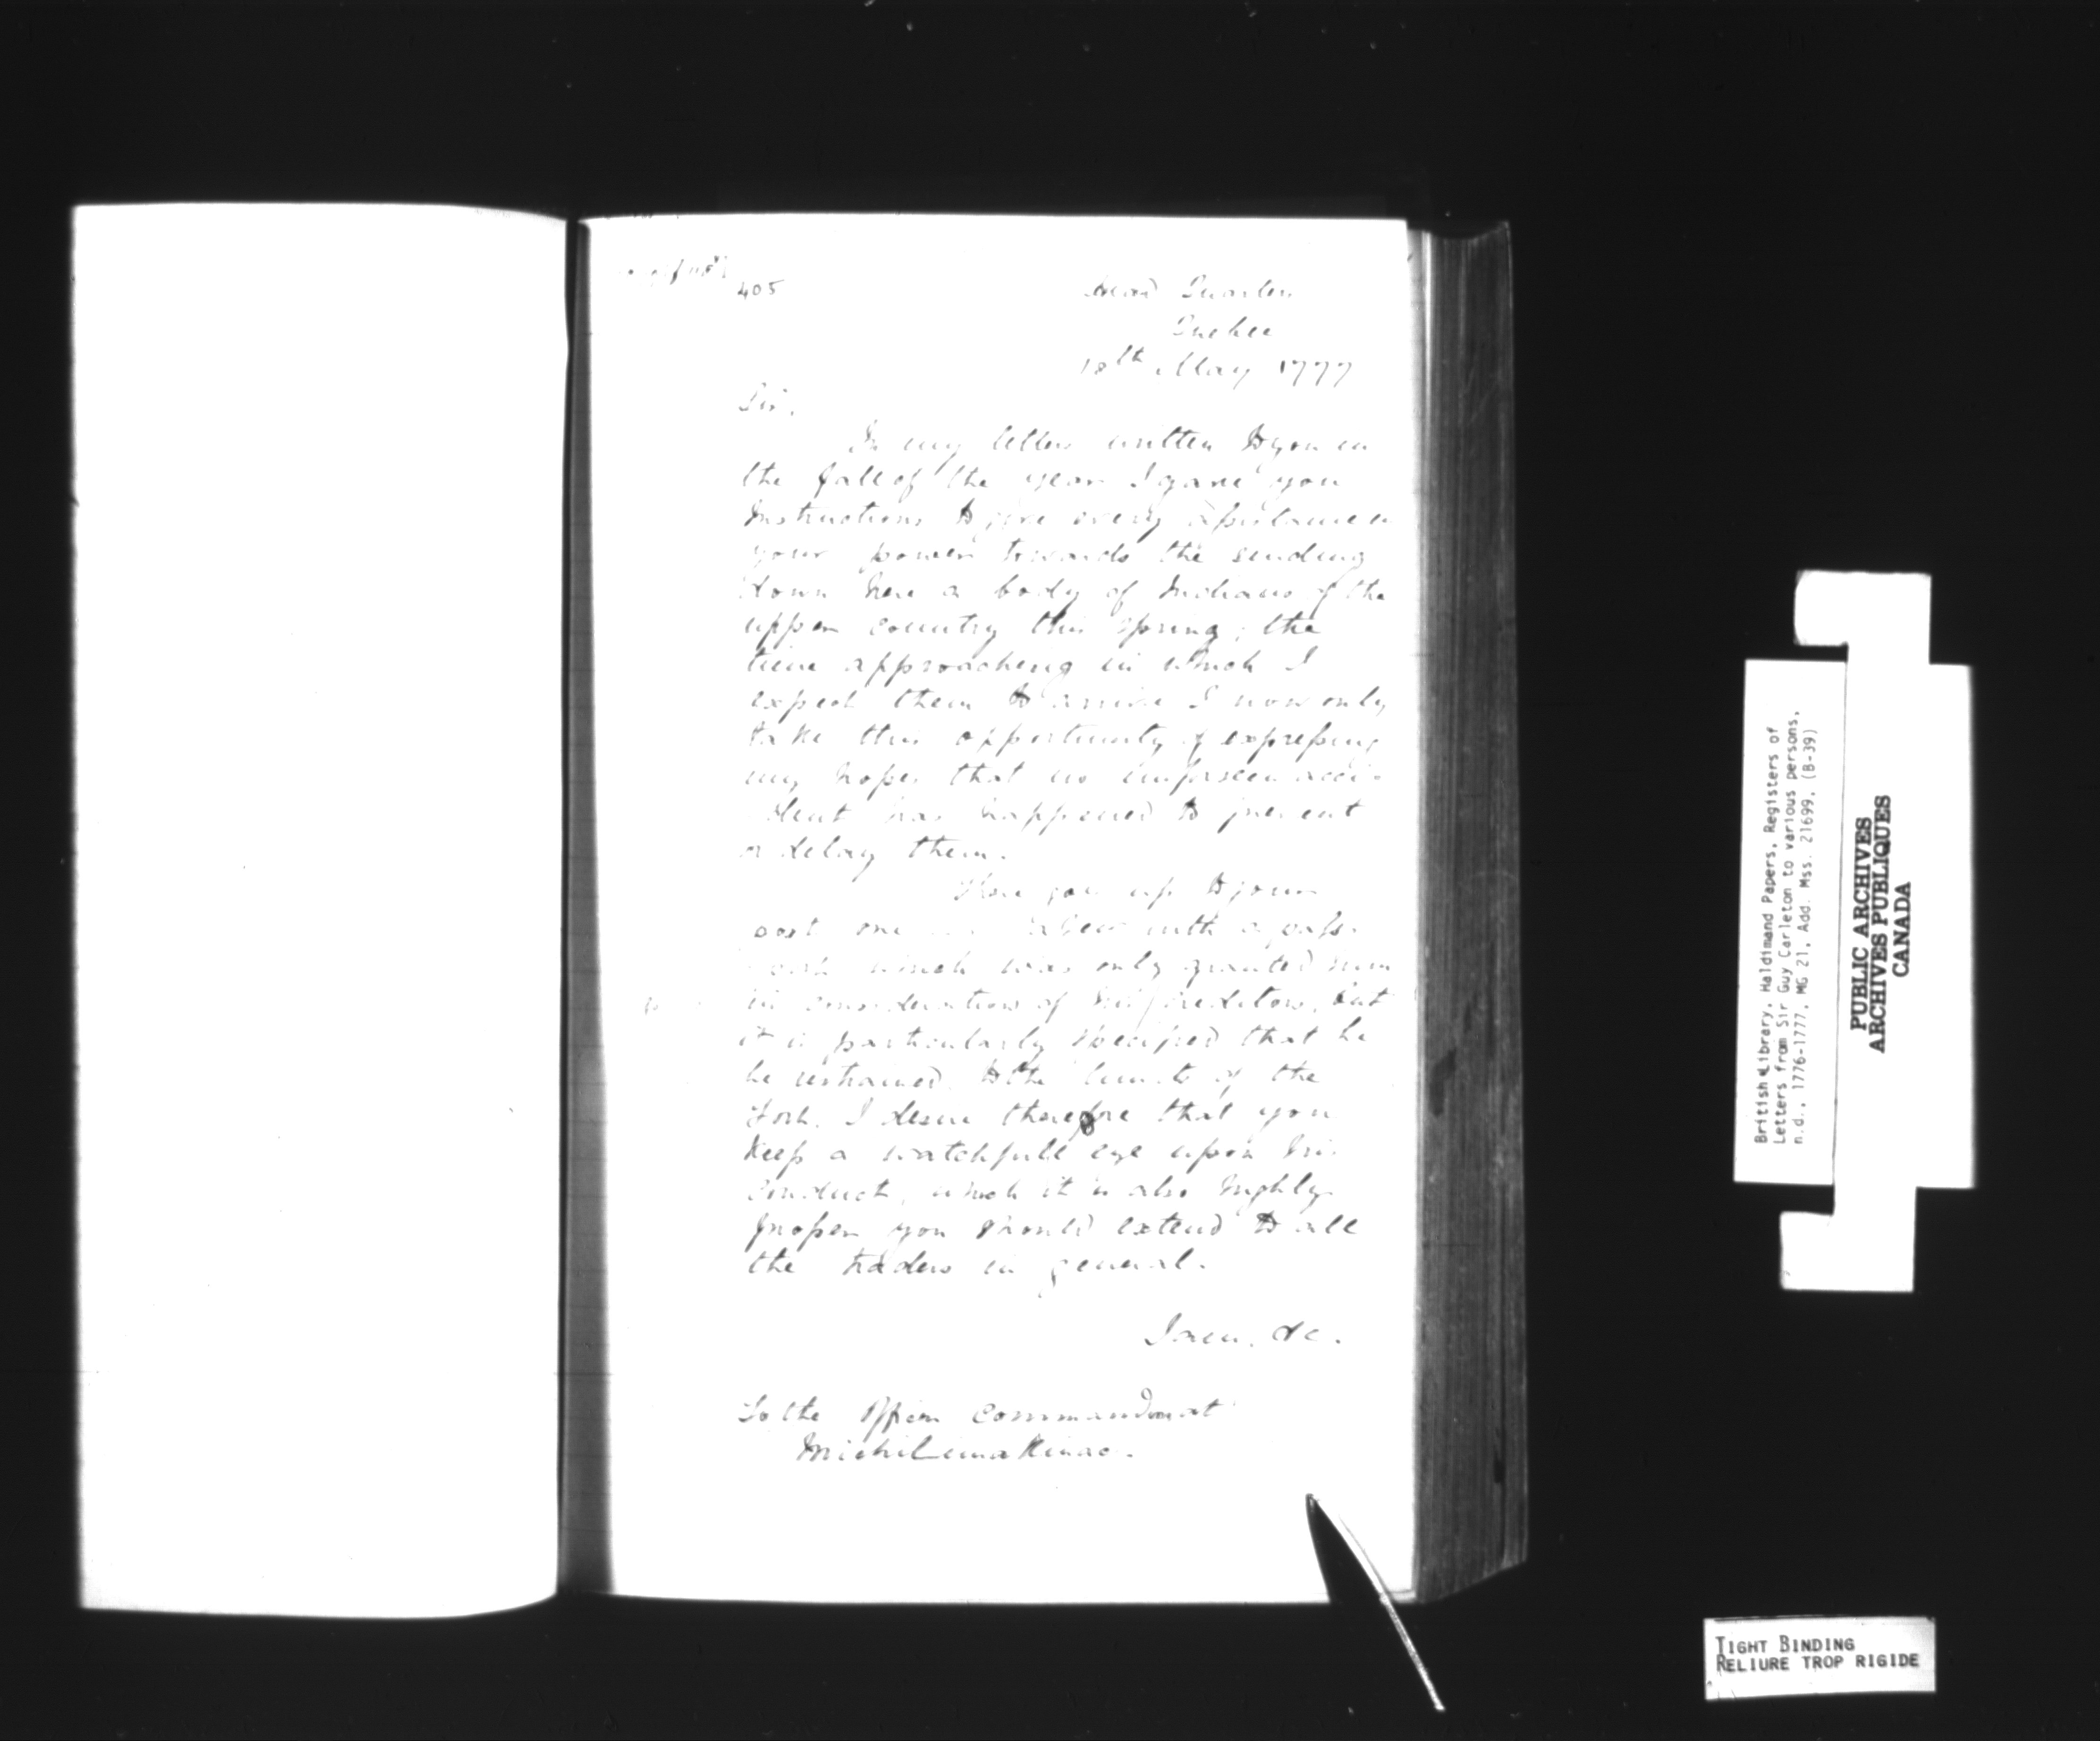 405
Head Quarters
Quebec
18th May 1777
Sir,
In my letters written to you in
the fall of the year I gave you
Instructions to give every assistance in
your power towards the sending
down here a body of Indians of the
upper country this spring; the
time approaching in which I
expect them to arrive I now only
take this opportunity of expressing
my hopes that no unforseen acci-
dent has happened to prevent
or delay them.
There goes up to your
post one with a pass-
port which was only granted him
in consideration of his creditors, but
it is particularly specified that he
be restrained to the limits of the
Fort. I desire therefore that you
keep a watchfull eye upon his
conduct, which it is also highly
proper you should extend to all
the traders in general.
I am, &c.
To the Officer Commandant
Michilimakinac.
British Library, Haldimand Papers, Registers of
Letters from Sir Guy Carleton to various persons,
n.d., 1776-1777, MG 21, Add. Mss. 21699, (B-39)
PUBLIC ARCHIVES
ARCHIVES PUBLIQUES
CANADA
TIGHT BINDING
RELIURE TROP RIGIDE